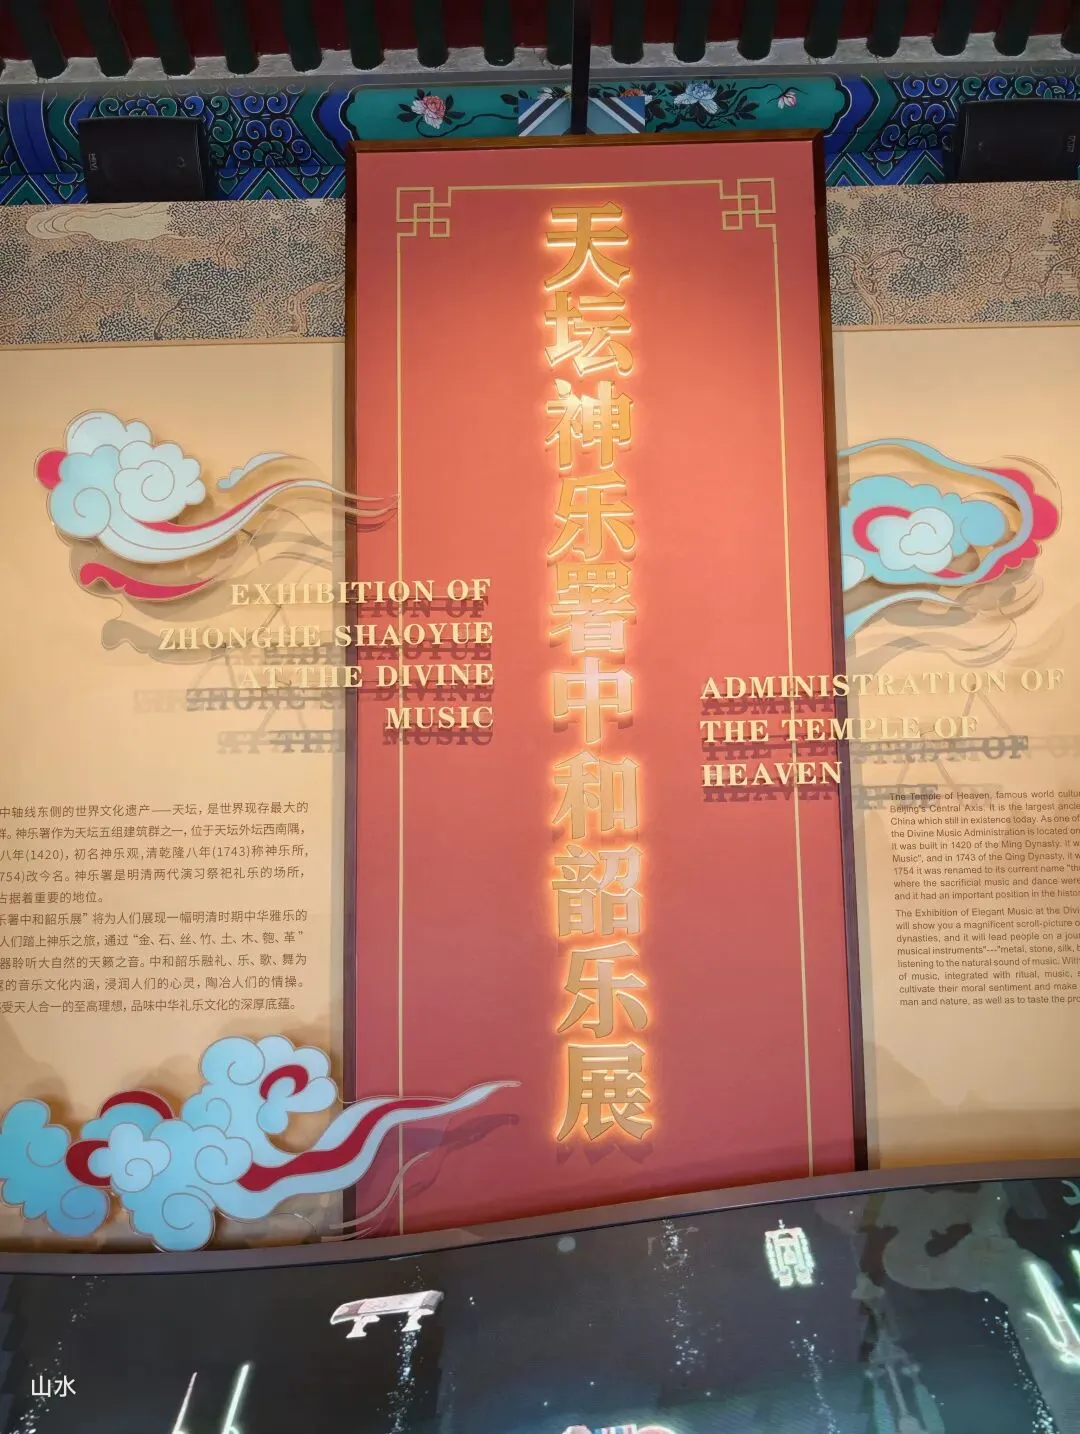 天坛神乐署中和韶乐展
EXHIBITION OF
ZHONGHE SHAOYUE
AT THE DIVINE
MUSIC
ADMINISTRATION OF
THE TEMPLE OF
HEAVEN
中轴线东侧的世界文化遗产——天坛，是世界现存最大的
群。神乐署作为天坛五组建筑群之一，位于天坛外坛西南隅，
八年(1420)，初名神乐观,清乾隆八年(1743)称神乐所,
754)改今名。神乐署是明清两代演习祭祀礼乐的场所，
占据着重要的地位。
乐署中和韶乐展”将为人们展现一幅明清时期中华雅乐的
人们踏上神乐之旅，通过“金、石、丝、竹、土、木、匏、革”
器聆听大自然的天籁之音。中和韶乐融礼、乐、歌、舞为
的音乐文化内涵，浸润人们的心灵，陶冶人们的情操。
受天人合一的至高理想，品味中华礼乐文化的深厚底蕴。
The Temple of Heaven, famous world cultu
Beijing's Central Axis. It is the largest ancie
China which still in existence today. As one of
the Divine Music Administration is located on
it was built in 1420 of the Ming Dynasty. It w
Music", and in 1743 of the Qing Dynasty, it w
1754 it was renamed to its current name "th
where the sacrificial music and dance were
and it had an important position in the histor
The Exhibition of Elegant Music at the Divi
will show you a magnificent scroll-picture o
dynasties, and it will lead people on a jou
musical instruments"---"metal, stone, silk, b
listening to the natural sound of music. With
of music, integrated with ritual, music, s
cultivate their moral sentiment and make
man and nature, as well as to taste the pro
山水